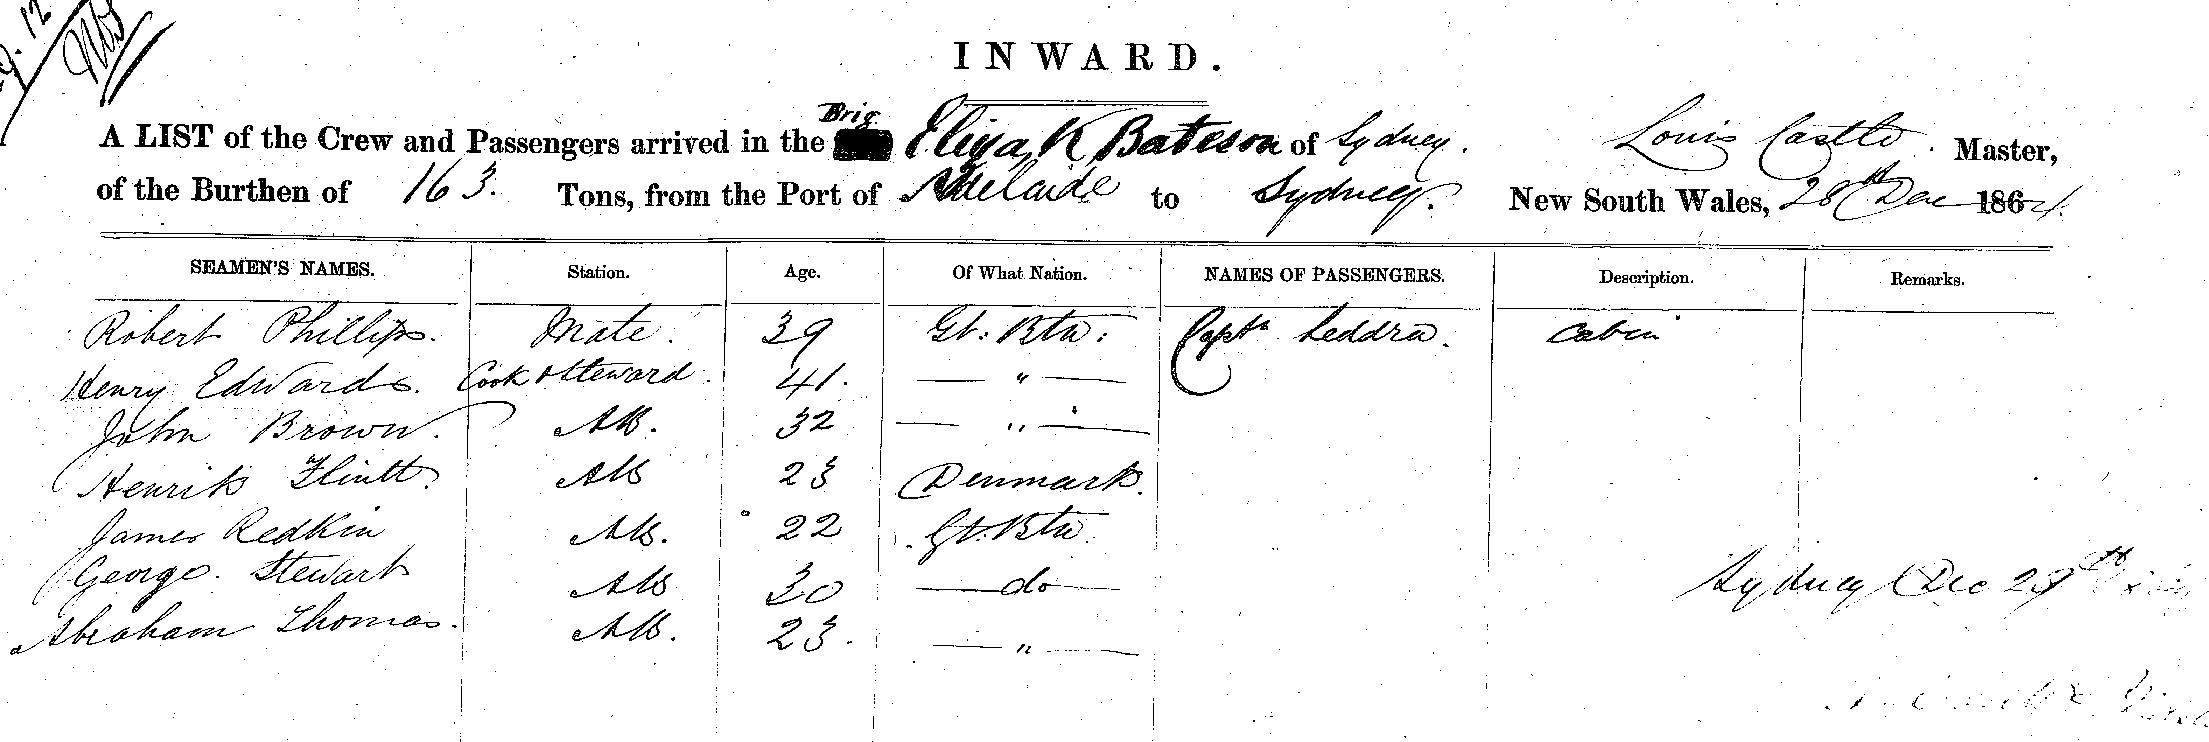 INWARD.
Brig
A LIST of the Crew and Passengers arrived in the Eliza K Bateson of Sydney. Louis Castle. Master,
of the Burthen of 163. Tons, from the Port of Adelaide to Sydney. New South Wales, 28th Dec 1864.
SEAMEN'S NAMES. Station. Age. Of What Nation. NAMES OF PASSENGERS. Description. Remarks.
Robert Phillips. Mate. 39 Gt. Btn: Captn Leddra. Cabin
Henry Edwards. Cook & Steward. 41. — " —
John Brown. AB. 32 — " —
Henrik Flintt. AB 23 Denmark.
James Redkin AB. 22 Gt. Btn.
George. Stewart AB 30 — do —
Abraham Thomas. AB. 23. — " —
Sydney Dec 29th